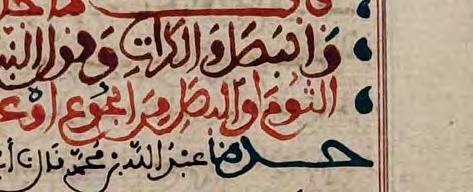 باب ما جا
وَالبَصَلِ وَالكُرَّاثِ وَقول النبي
الثُّومَ اوِ البَصَلَ مِنَ الجُوعِ اوْ
حدثنا عبد الله بن محمد قال